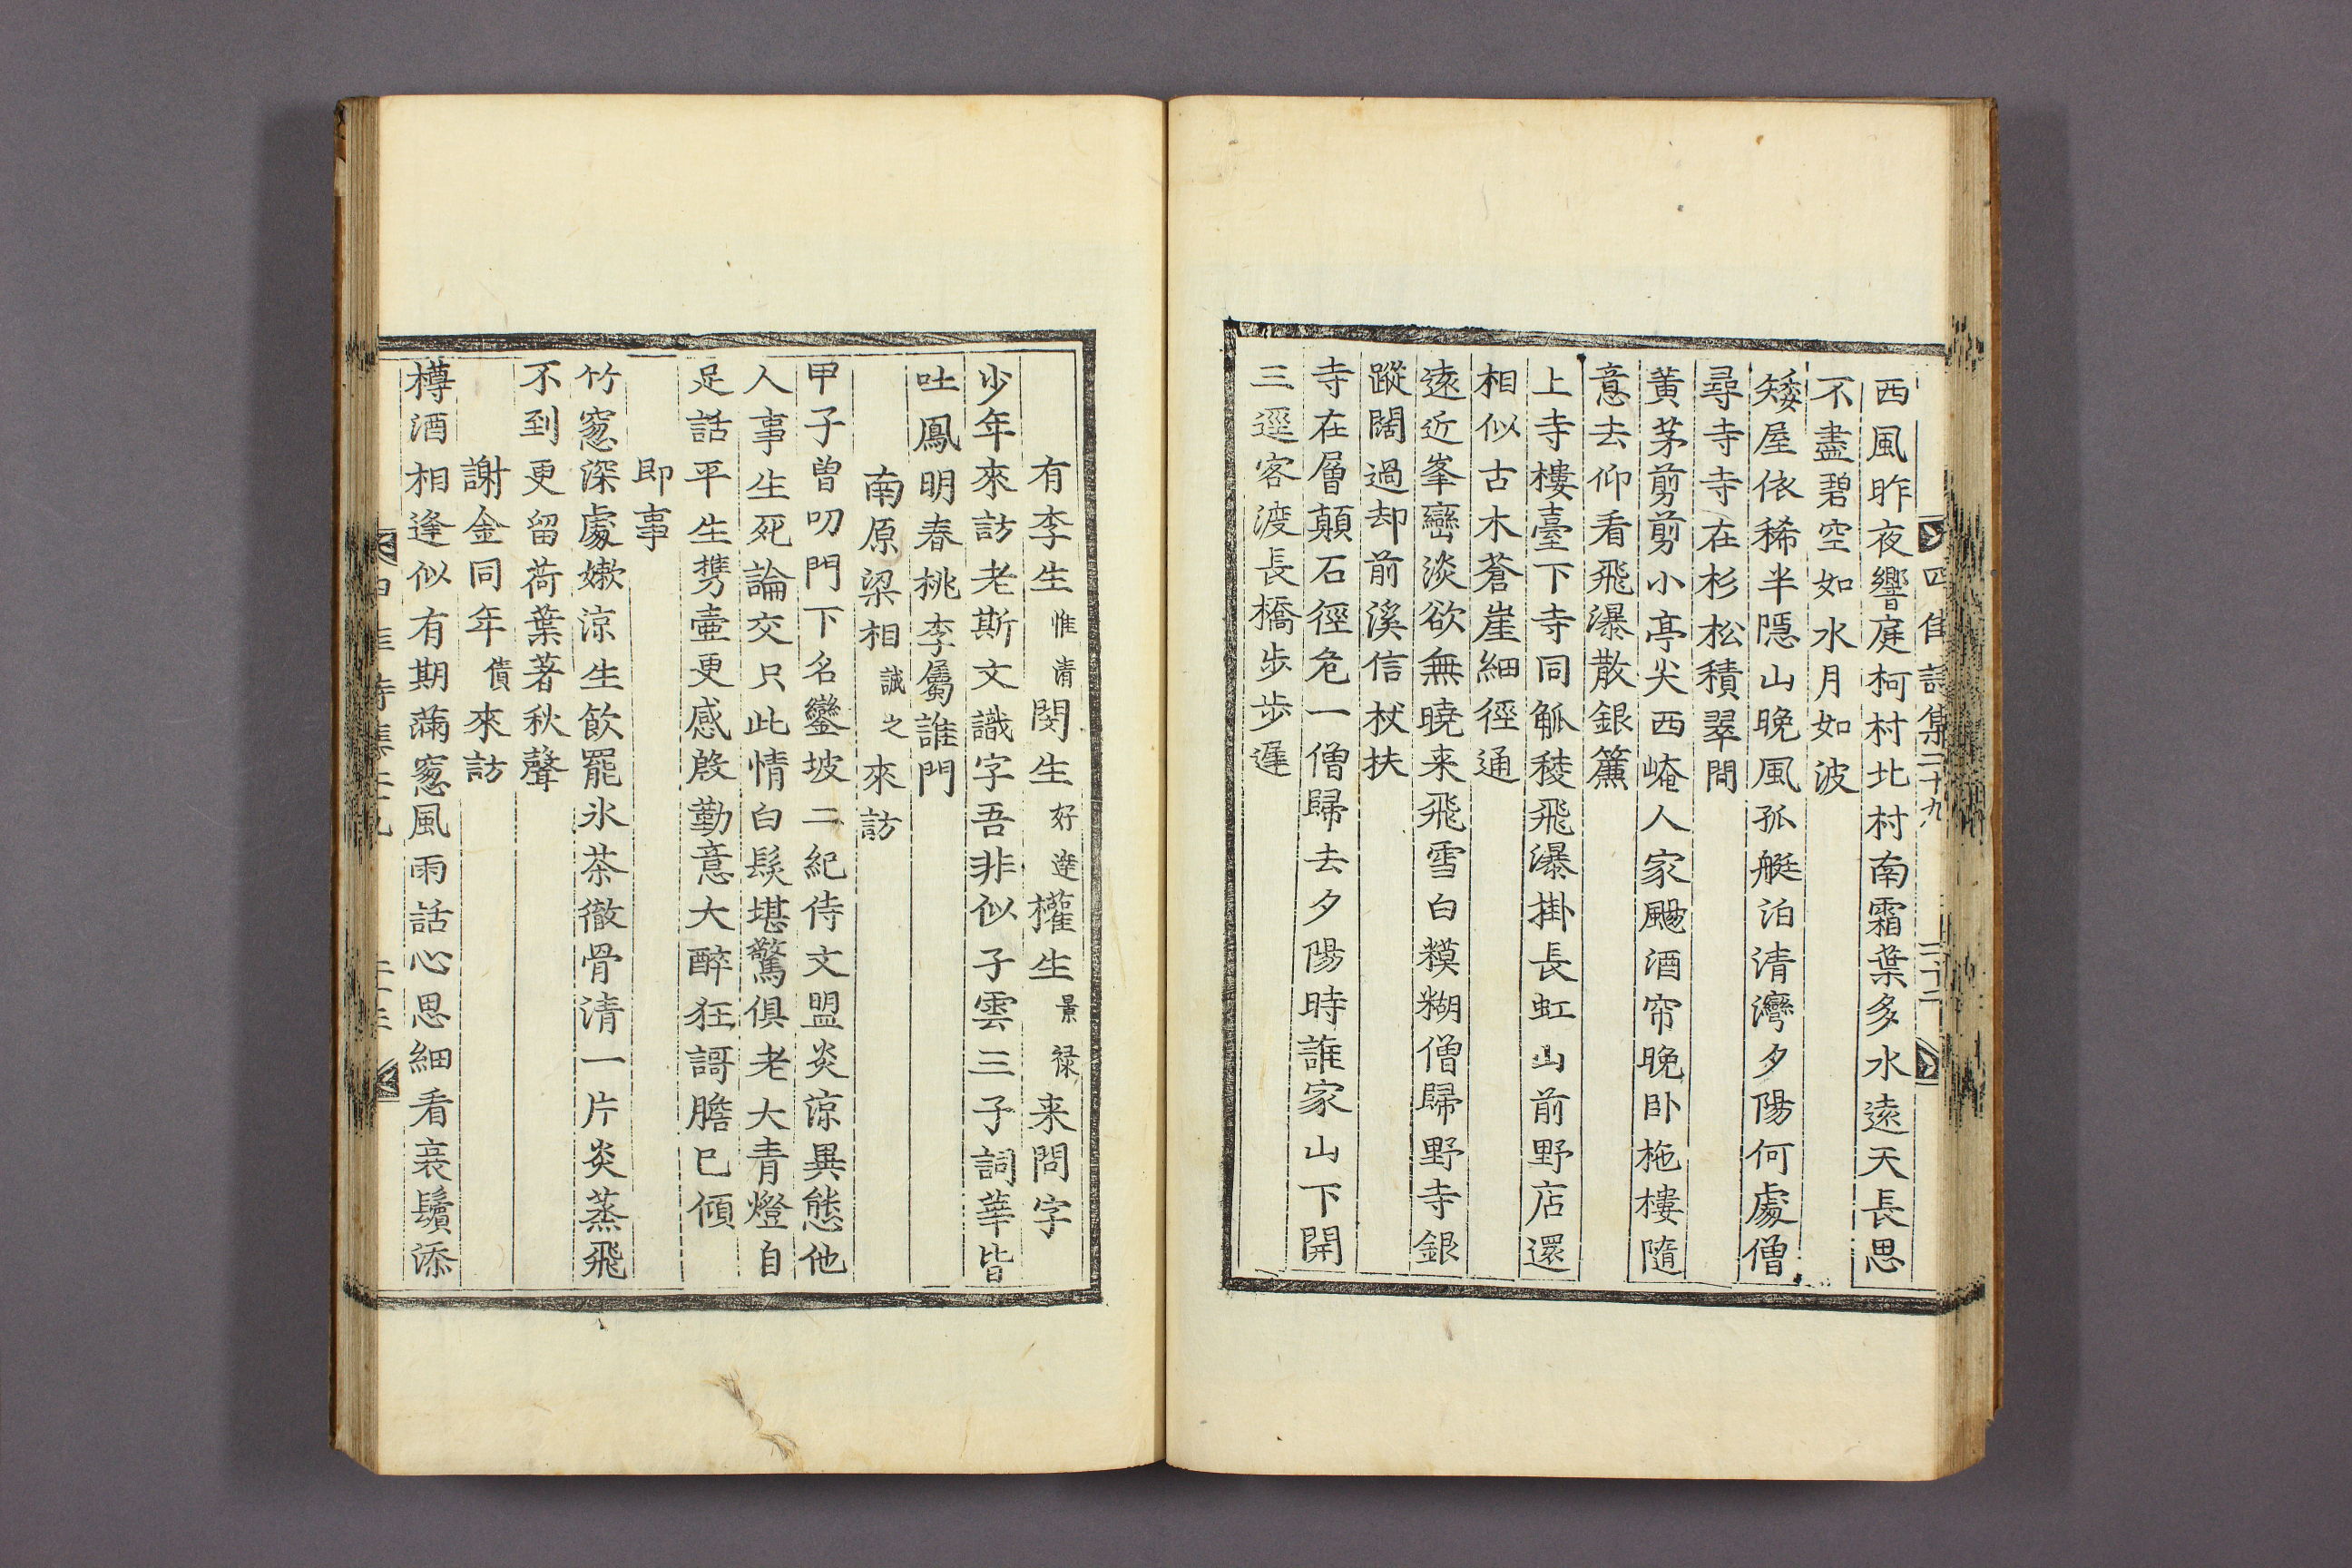 四佳詩集二十九 二十二
西風昨夜響庭柯村北村南霜葉多水遠天長思
不盡碧空如水月如波
矮屋依稀半隱山晩風孤艇泊清灣夕陽何處僧
尋寺寺在杉松積翠間
黃茅剪剪小亭尖西崦人家颺酒帘晩卧拖樓隨
意去仰看飛瀑散銀簾
上寺樓臺下寺同觚稜飛瀑掛長虹山前野店還
相似古木蒼崖細徑通
遠近峯巒淡欲無曉来飛雪白糢糊僧歸野寺銀
蹤闊過却前溪信杖扶
寺在層顛石徑危一僧歸去夕陽時誰家山下開
三逕客渡長橋步步遲
有李生惟清閔生好達權生景祿来問字
少年來訪老斯文識字吾非似子雲三子詞華皆
吐鳳明春桃李屬誰門
南原梁相誠之來訪
甲子曽叨門下名鑾坡二紀侍文盟炎凉異態他
人事生死論交只此情白髮堪驚俱老大青燈自
足話平生携壷更感殷勤意大醉狂謌膽已傾
即事
竹窓深處嫰凉生飮罷氷茶徹骨清一片炎蒸飛
不到更留荷葉著秋聲
謝金同年僨來訪
樽酒相逢似有期滿窓風雨話心思細看衰鬢添